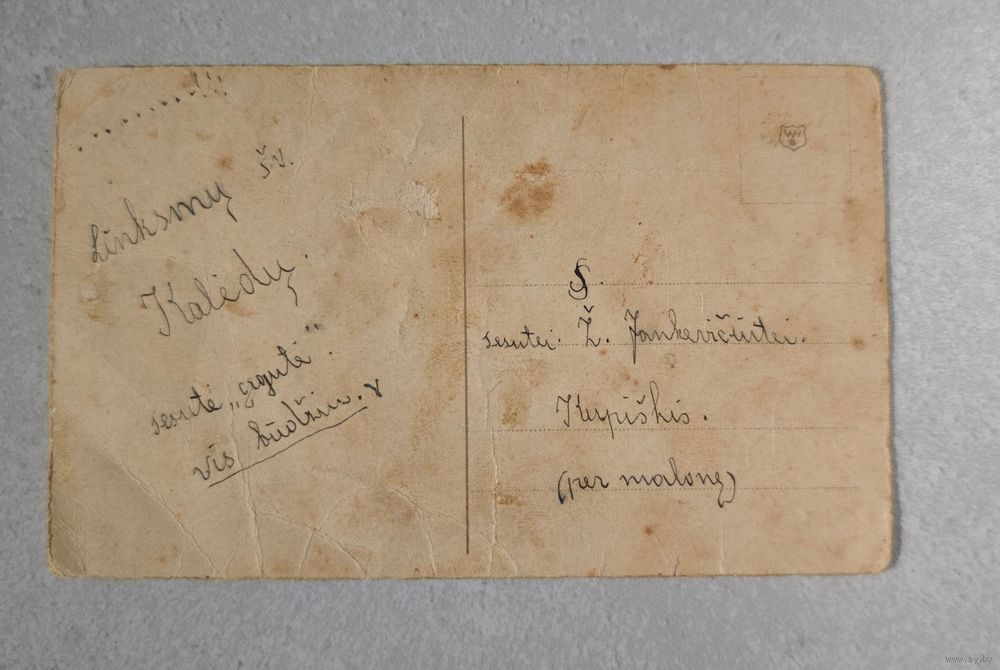 ..........!!!
šv.
Linksmų
Kalėdų.
sesutė „
vis budžiu.
S.
sesutei. Ž. Jankevičiūtei.
Kupiškis.
(per malonę)
WH
www.ay.by